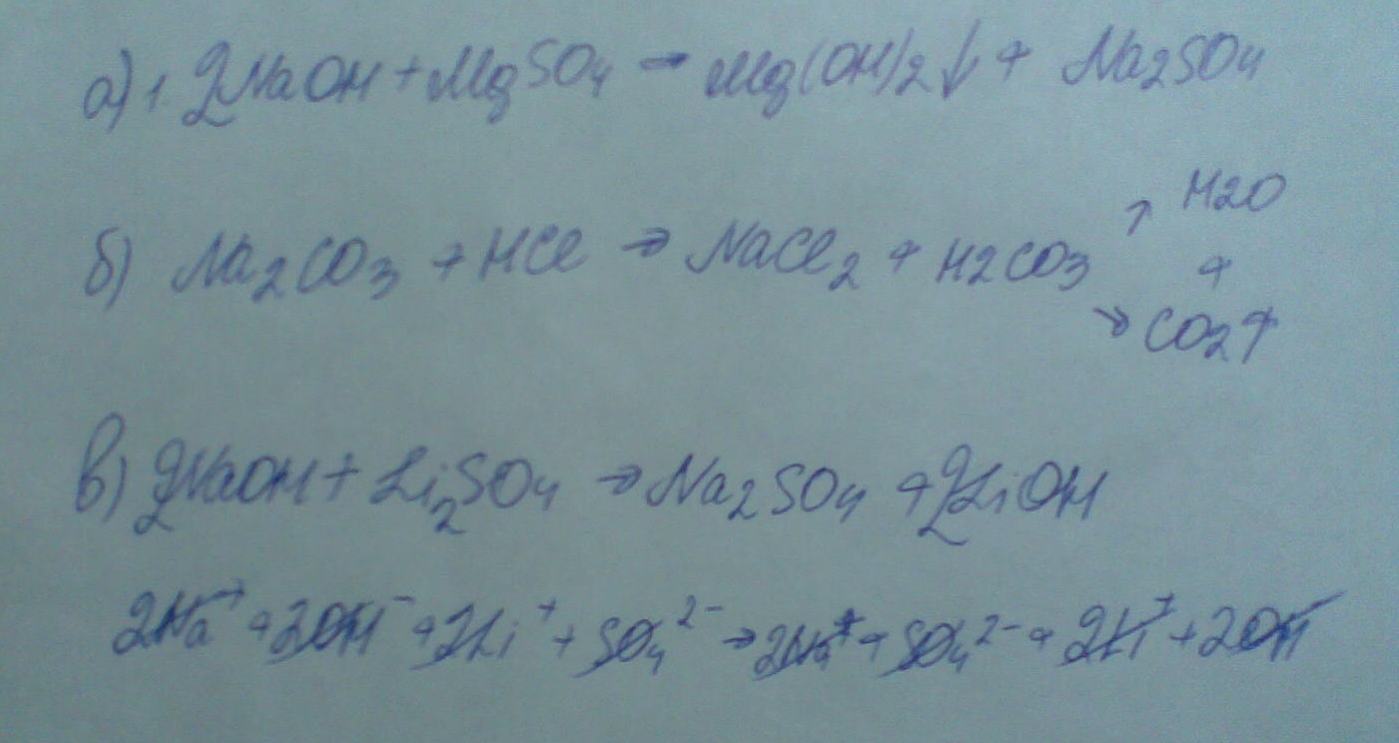 а) 1. 2NaOH + MgSO4 → Mg(OH)2↓ + Na2SO4
↗ H2O
б) Na2CO3 + HCl → NaCl2 + H2CO3 +
↘ CO2↑
в) 2NaOH + Li2SO4 → Na2SO4 + 2LiOH
2Na⁺ + 2OH⁻ + 2Li⁺ + SO4²⁻ → 2Na⁺ + SO4²⁻ + 2Li⁺ + 2OH⁻